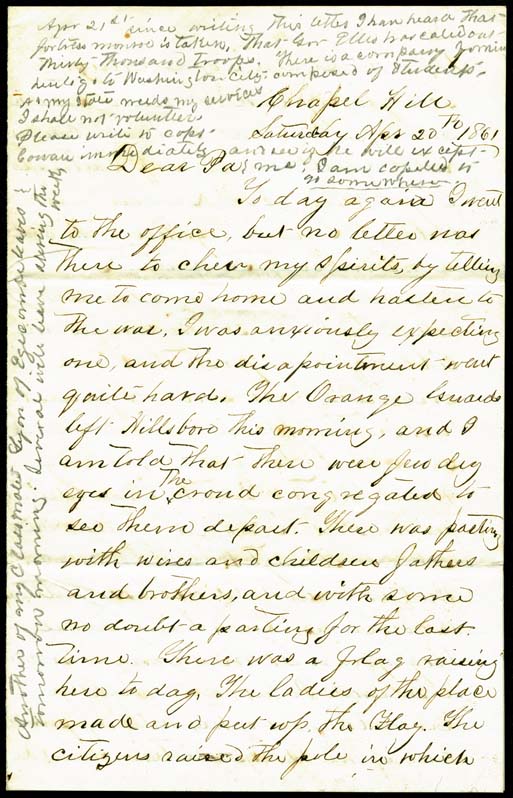 Apr 21st since writing this letter I han heard that
fortress monroe is taken, That Gov Ellis has caled out
thirty thousand troops. There is a company forming
to Washington City composed of students.
As my state needs my services
I shall not volunteer
Please write to Capt.
Cowan immediately and see if he will except
me. I am copeled to
go somewhere
Chapel Hill
Saturday Apr 20th 1861
Dear Pa;
To day again I went
to the office, but no letter was
there to chear my spirits, by telling
me to come home and hasten to
the war, I was anxiously expecting
one, and the disapointment went
quite hard. The Orange Guards
left Hillsboro this morning, and I
am told that there were few dry
eyes in the croud congregated to
see them depart. There was parting
with wives and children fathers
and brothers, and with some
no doubt a parting for the last
time. There was a flag raising
here to day, The ladies of the place
made and put up, the Flag. The
citizens raised the pole in which
Another of my classmates Lyon of Edgecombe leaves
tomorrow morning. Several will leave during the week